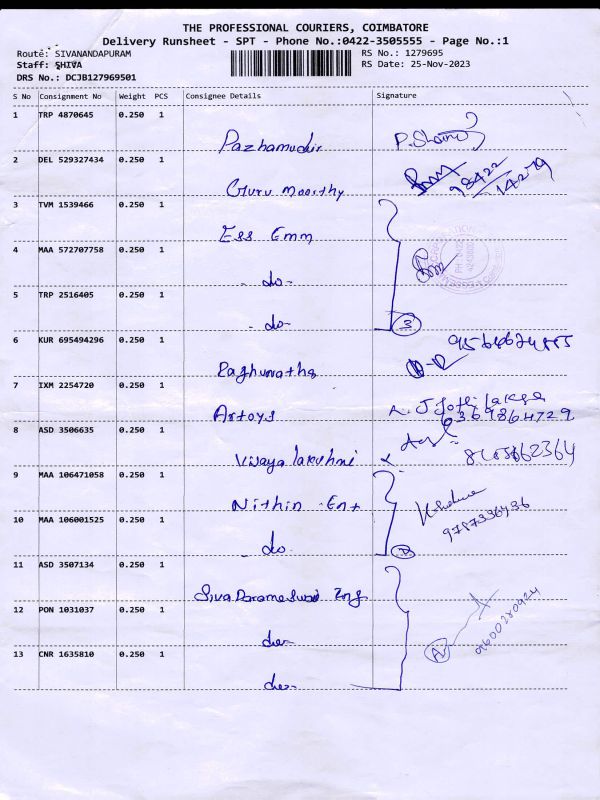 THE PROFESSIONAL COURIERS, COIMBATORE
Delivery Runsheet - SPT - Phone No.:0422-3505555 - Page No.:1
Route: SIVANANDAPURAM RS No.: 1279695
Staff: SHIVA RS Date: 25-Nov-2023
DRS No.: DCJB127969501
S No Consignment No Weight PCS Consignee Details Signature
1 TRP 4870645 0.250 1
Pazhamudir
2 DEL 529327434 0.250 1
Guru moorthy 98422 14279
3 TVM 1539466 0.250 1
Ess Emm
4 MAA 572707758 0.250 1
- do -
5 TRP 2516405 0.250 1
- do - 3
6 KUR 695494296 0.250 1
Raghunatha
7 IXM 2254720 0.250 1
Artoys 6369864729
8 ASD 3506635 0.250 1
Vijaya lakshmi
9 MAA 106471058 0.250 1
Nithin Ent
10 MAA 106001525 0.250 1
do
11 ASD 3507134 0.250 1
Siva Parameswari Eng
12 PON 1031037 0.250 1
do
13 CNR 1635810 0.250 1
do